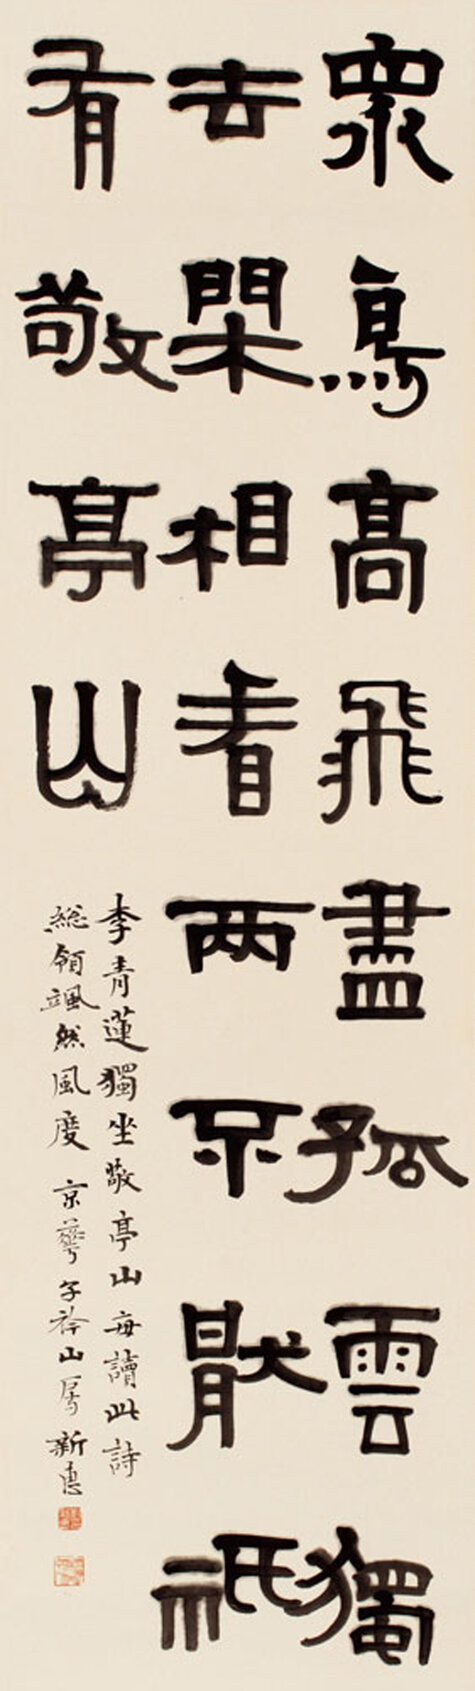 眾鳥高飛盡孤雲獨
去閑相看兩不厭祇
有敬亭山
李青蓮獨坐敬亭山每讀此詩
總領颯然風度 京華子衿山房新惠